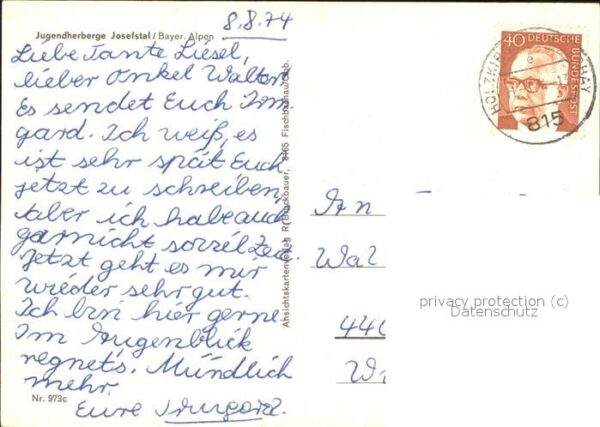 8.8.74
Jugendherberge Josefstal / Bayer. Alpen
Liebe Tante Liesel,
lieber Onkel Walter!
Es sendet Euch Irm
gard. Ich weiß, es
ist sehr spät Euch
jetzt zu schreiben,
aber ich habe auch
garnicht soviel Zeit.
Jetzt geht es mir
wieder sehr gut.
Ich bin hier gerne.
Im Augenblick
regnets. Mündlich
mehr.
Eure Irmgard.
Nr. 973c
Ansichtskartenverlag R. Bruckbauer, Fischbachau/Obb.
40 DEUTSCHE
BUNDESPOST
815
An
Wal
440
privacy protection (c)
Datenschutz